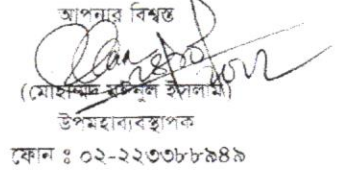 আপনার বিশ্বস্ত
(মোহাম্মদ মঈনুল ইসলাম)
উপমহাব্যবস্থাপক
ফোন ঃ ০২-২২৩৩৮৮৯৪৯